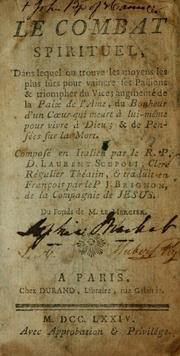 LE COMBAT
SPIRITUEL,
Dans lequel on trouve les moyens les
plus sûrs pour vaincre ses Passions
& triompher du Vice; augmenté de
la Paix de l'Ame, du Bonheur
d'un Cœur qui meurt à lui-même
pour vivre à Dieu; & de Pen-
sées sur la Mort.
Composé en Italien par le R. P.
D. LAURENT SCUPOLI, Clerc
Régulier Théatin, & traduit en
François par le P. J. BRIGNON,
de la Compagnie de JESUS.
Du Fonds de M. LE MERCIER.
A PARIS,
Chez DURAND, Libraire, rue Galande.
M. DCC. LXXIV.
Avec Approbation & Privilége.